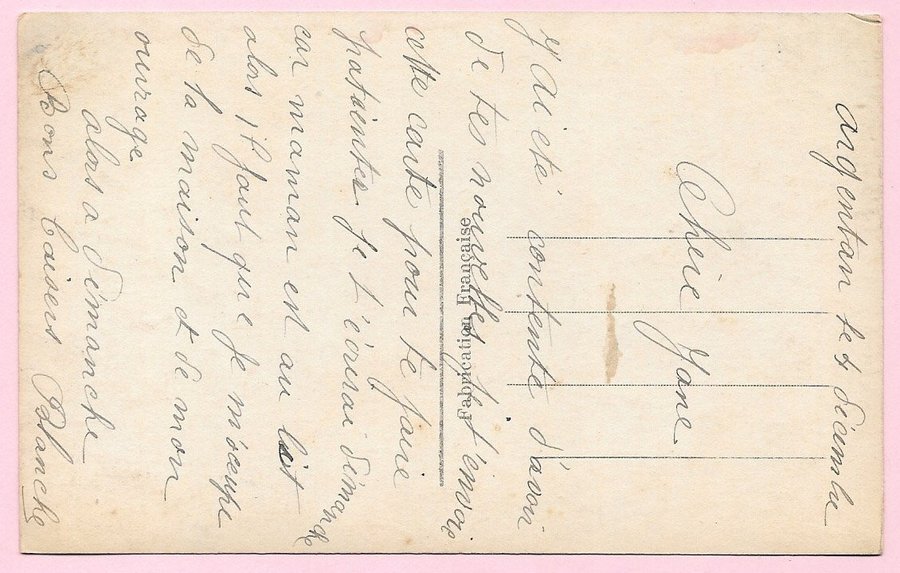 argentan le 4 décembre
Chère Jane
j'ai été contente d'avoir
de tes nouvelles je t'envois
cette carte pour te faire
patienter je t'écrirai dimanche
car maman est au lit
alors il faut que je m'ocupe
de la maison et de mon
ouvrage
alors a dimanche
Bons Baisers Blanche
Fabrication Française